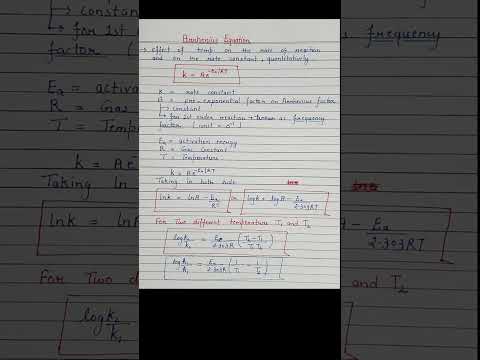 Arrhenius Equation
→ Effect of temp. on the rate of reaction
and on the rate constant, quantitatively
k = Ae^-Ea/RT
K = rate constant
A = pre-exponential factor or Arrhenius factor
↳ constant
↳ for 1st order reaction known as frequency
factor (unit = s⁻¹)
Ea = activation energy
R = Gas Constant
T = Temperature
k = Ae^-Ea/RT
Taking ln both side
lnk = lnA - Ea/RT or logk = logA - Ea/2.303RT
For Two different temperature T₁ and T₂
log k₂/k₁ = Ea/2.303R (T₂-T₁/T₁T₂)
log k₂/k₁ = Ea/2.303R (1/T₁ - 1/T₂)